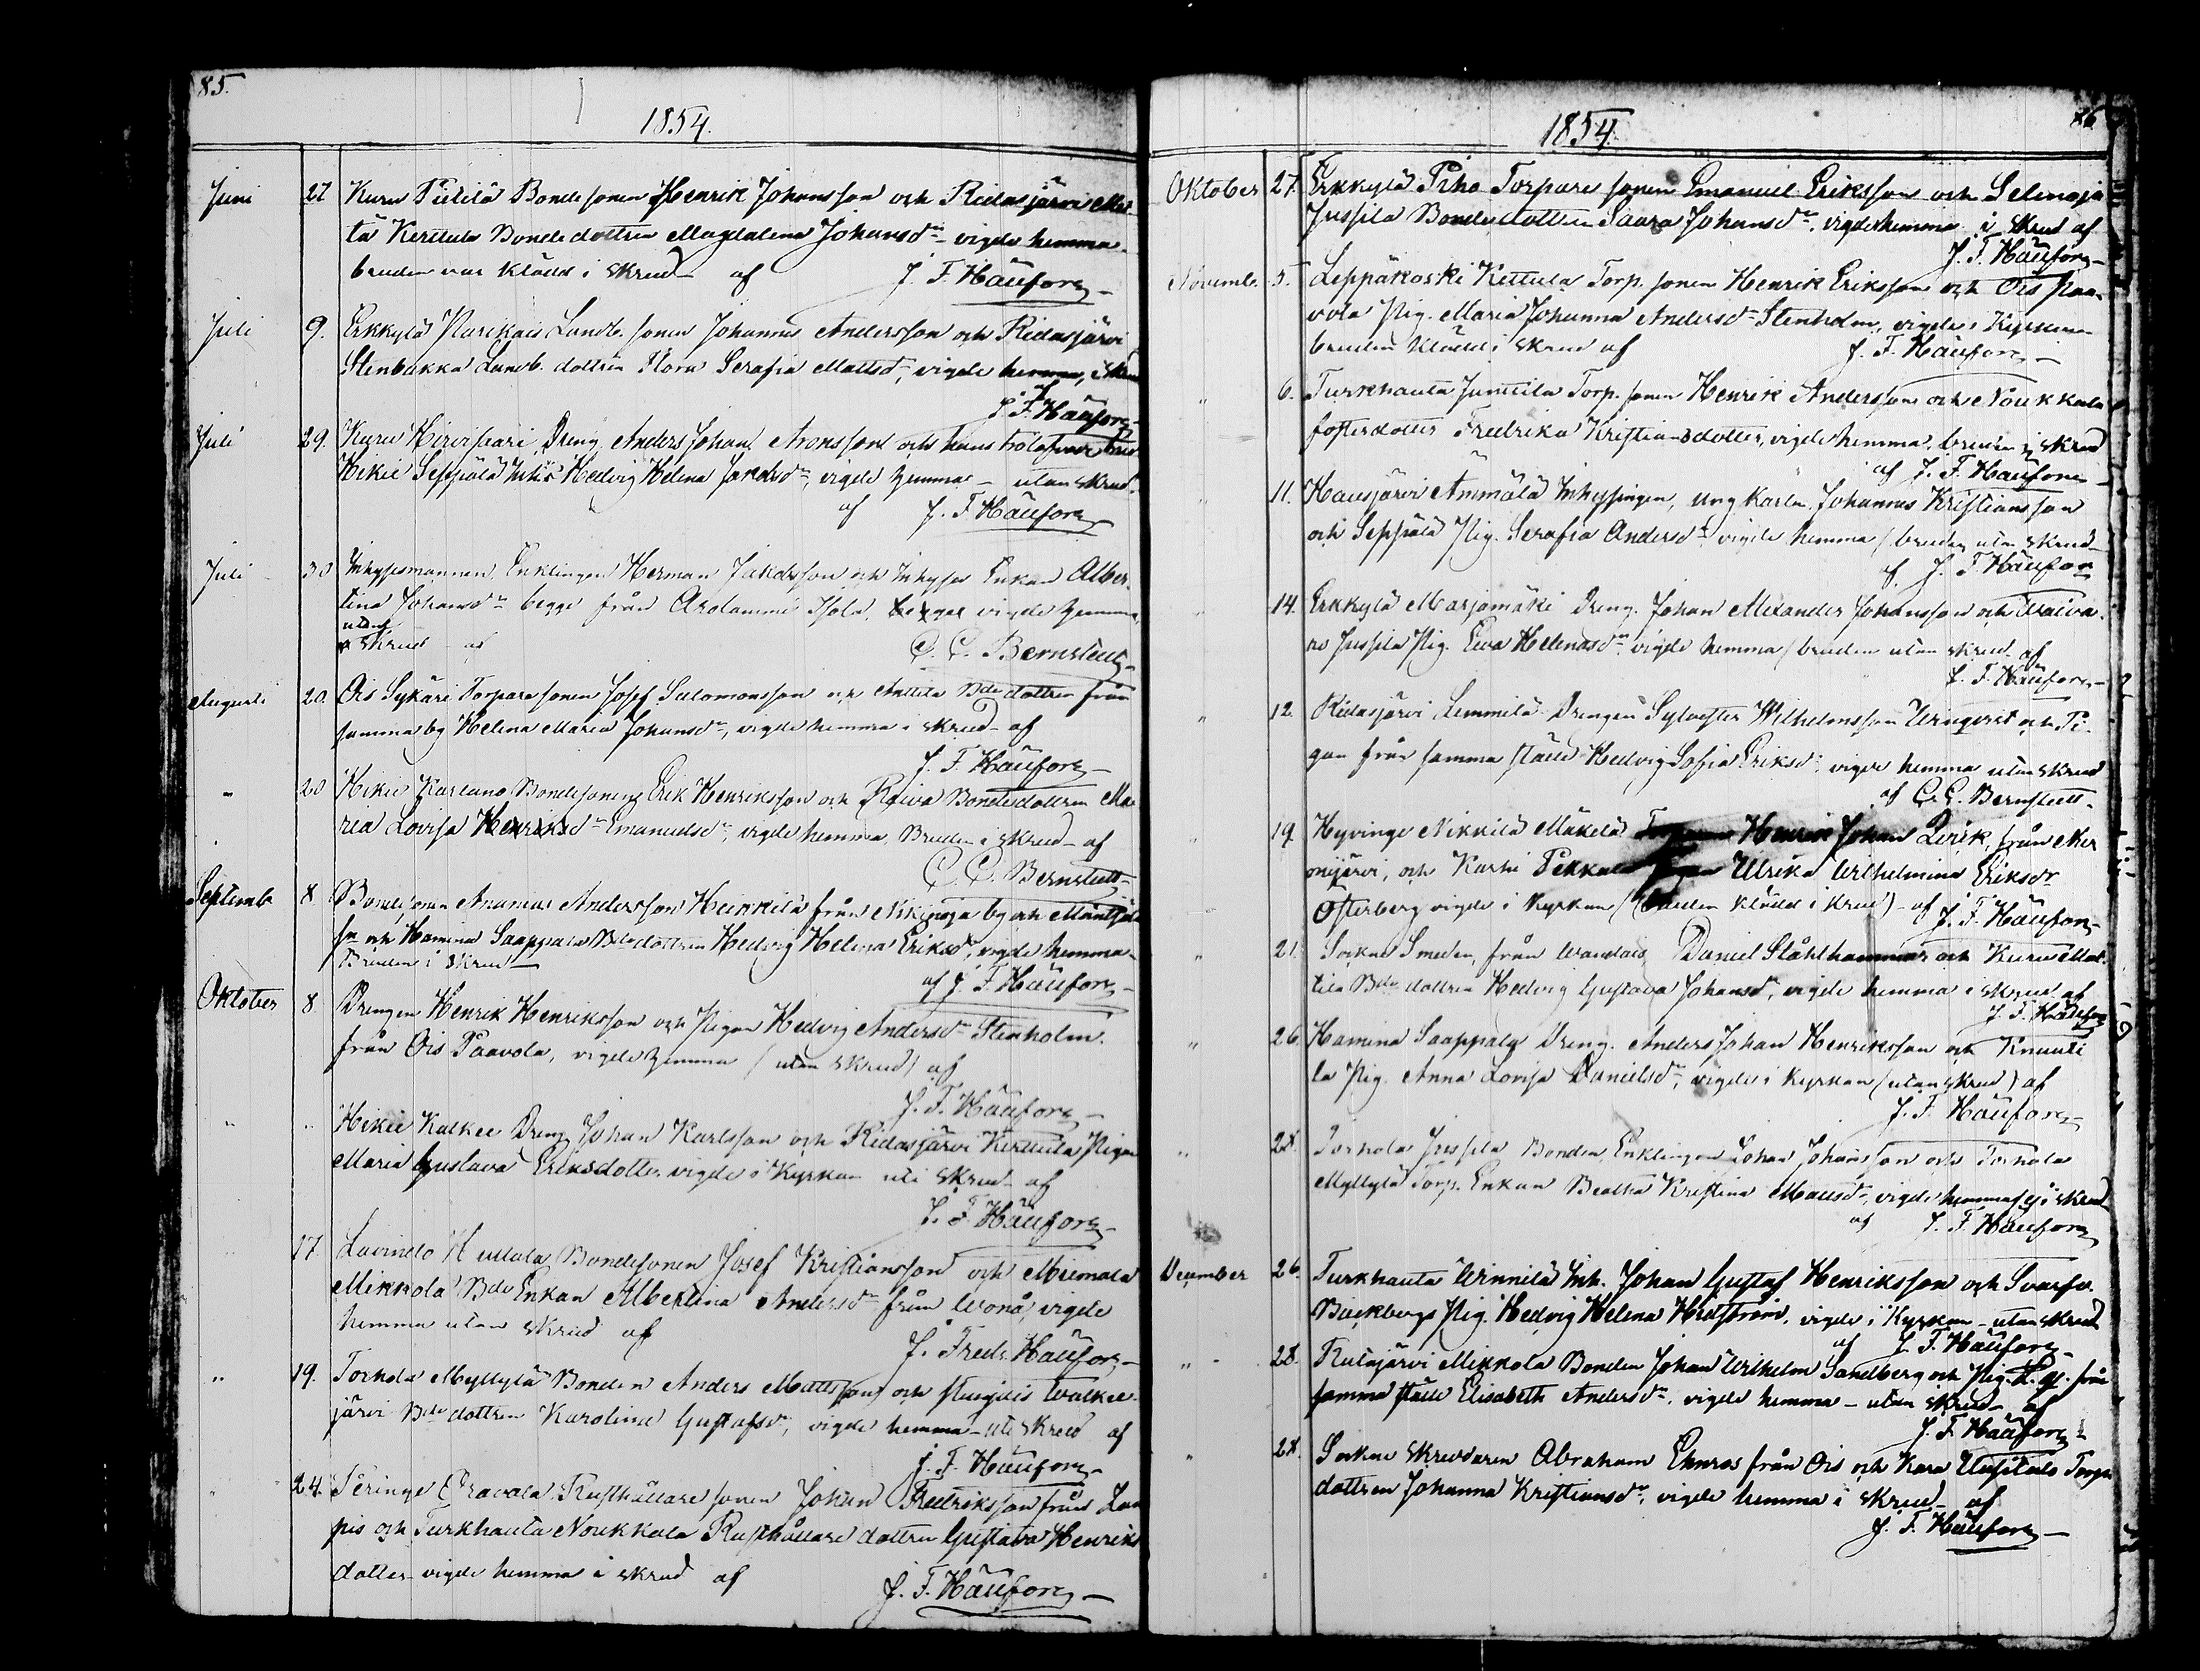 85.
1854.
Juni 27 Kuru Pietilä Bondesonen Henrik Johansson och Ridasjärvi Mat-
tä Kerttula Bondedottren Magdalena Johansdr vigde hemma
bruden var klädd i skrud af J. F. Häufors
Juli 9. Erkkylä Landb. sonen Johannes Andersson och Ridasjärvi
Stenbakka Landb. dottren Flora Serafia Mattsdr, vigde hemma, i skrud
J. F. Häufors
Juli 29. Kuru Hirvisaari Dreng Anders Johan Aronsson och hans
Hikie Seppälä Hedvig Helena Jakobsdr, vigde hemma utan skrud
af J. F. Häufors
Juli 30 Inhysesmannen, Enklingen Herman Jakobsson och Inhyses Enkan Alber-
tina Johansdr begge från Arolammi vigde hemma
utan
skrud af C. C. Bernstedt
Augusti 20. Ois Sykäri Torparesonen Josef Salomonsson och Anttila Bde dottren från
samma by Helena Maria Johansdr, vigde hemma i skrud af
J. F. Häufors
" 20 Hikie Karlano Bondesonen Erik Henriksson och Raiva Bondedottren Ma-
ria Lovisa Henriksdr Emanuelsdr, vigde hemma, Bruden i skrud af
C. C. Bernstedt
Septemb. 8 Bondesonen Ananias Andersson Heikkilä från Nikinoja by och Mäntsälä
sn och Hamina Saappala Bde dottren Hedvig Helena Eriksdr, vigde hemma
Bruden i skrud
af J. F. Häufors
Oktober 8 Drengen Henrik Henriksson och Pigan Hedvig Andersdr Stenholm.
från Ois Paavola, vigde hemma (utan skrud) af
J. F. Häufors
" " Hikie Kalkee Dreng Johan Karlsson och Ridasjärvi Kerttula Pigan
Maria Gustava Eriksdotter vigde i Kyrkan uti skrud af
J. F. Häufors
17. Lavinto Bondesonen Josef Kristiansson och
Mikkola Bde Enkan Albertina Andersdr från vigde
hemma utan skrud af
J. Fredr. Häufors
" 19. Torhola Myllylä Bonden Anders Mattsson och
järvi Bde dottren Karolina Gustafsdr, vigde hemma uti skrud af
J. F. Häufors
" 24. Eravala Rusthållare sonen Johan Fredriksson från Lop-
pis och Turkhauta Noukkala Rusthållare dottren Gustava Henriks
dotter vigde hemma i skrud af
J. F. Häufors
86
1854.
Oktober 27. Erkkylä Piho Torpare sonen Emanuel Eriksson och Selinoja
Jussila Bondedottren Saara Johansdr. vigde hemma i skrud af
J. F. Häufors
Novemb. 5. Leppäkoski Kettula Torp. sonen Henrik Eriksson och Ois Paa-
vola Pig. Maria Johanna Andersdr Stenholm, vigde i Kyrkan
bruden klädd i skrud af J. F. Häufors
" 6. Turkhauta Junttila Torp. sonen Henrik Andersson och Noukkala
fosterdotter Fredrika Kristiansdotter, vigde hemma, bruden ej skrud
af J. F. Häufors
" 11. Hausjärvi Ämmälä Inhysingen, ung Karlen Johannes Kristiansson
och Seppälä Pig. Serafia Andersdr vigde hemma (bruden utan skrud
af J. F. Häufors
" 14. Erkkylä Marjamäki Dreng. Johan Alexander Johansson och
Jussila Pig. Eva Helena vigde hemma (bruden utan skrud af
J. F. Häufors
" 12. Ridasjärvi Lemmilä Drengen Sylvester Wilhelmsson och Pi-
gan från samma ställe Hedvig Sofia Eriksdr, vigde hemma utan skrud
af C. C. Bernstedt
" 19 Hyvinge Nikkilä Mäkelä Henrik Johan från Nur
mijärvi, och Pekkala Ulrika Wilhelmina Eriksdr
Österberg vigde i Kyrkan (bruden klädd i skrud) af J. F. Häufors
" 21. Sockne Smeden, från Daniel Stålhammar och Kuru Mat-
tila Bde dottren Hedvig Gustava Johansdr, vigde hemma i skrud af
J. F. Häufors
" 26. Hamina Saappala Dreng. Anders Johan Henriksson och Knuuti
la Pig. Anna Lovisa Danielsdr, vigde i Kyrkan (utan skrud) af
J. F. Häufors
" 28. Torhola Jussila Bonden, Enklingen Johan Johansson och Torhola
Myllylä Torp. Enkan Beatha Kristina Mattsdr, vigde hemma ej i skrud
af J. F. Häufors
December 26. Turkhauta Winnilä Inh. Johan Gustaf Henriksson och
Bäckbergs Pig. Hedvig Helena Hedström, vigde i Kyrkan utan skrud
af J. F. Häufors
" 28. Rutajärvi Mikkola Bonden Johan Wilhelm Sandberg och Pig. från
samma ställe Elisabeth Andersdr, vigde hemma utan skrud af
J. F. Häufors
" 28. Sockne skreddaren Abraham Ekroos från Ois och Kara Uusitalo Torp.
dottren Johanna Kristiansdr, vigde hemma i skrud af
J. F. Häufors